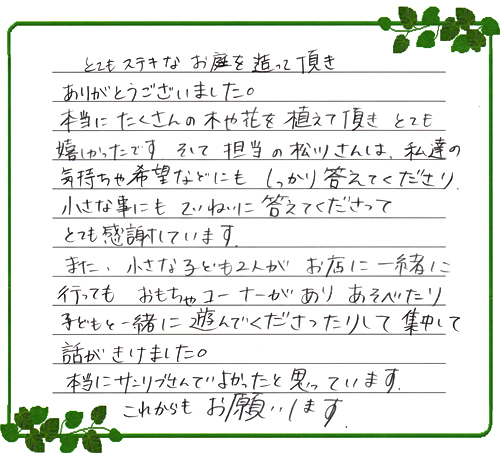 とてもステキな お庭を造って頂き
ありがとうございました。
本当に たくさんの 木や花を 植えて頂き とても
嬉しかったです そして 担当の松川さんは、私達の
気持ちや希望などにも しっかり 答えてくださり、
小さな事にも ていねいに 答えてくださって
とても感謝しています。
また、小さな子ども2人が お店に 一緒に
行っても おもちゃコーナーが あり あそべたり
子どもと一緒に 遊んでくださったりして 集中して
話が きけました。
本当に サンリブさんで よかったと 思っています。
これからも お願いします。